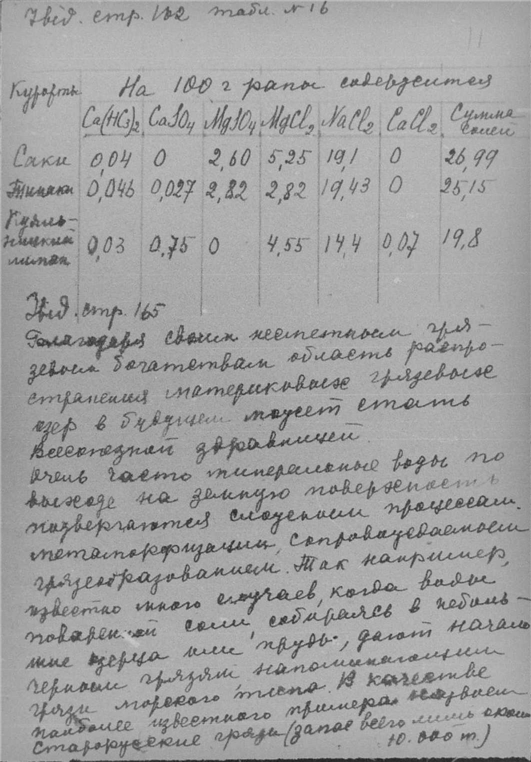 Ibid. стр. 162 табл. № 16
11
Курорты На 100 г рапы содержится
Ca(HC3)2 CaSO4 MgSO4 MgCl2 NaCl2 CaCl2 Сумма солей
Саки 0,04 0 2,60 5,25 19,1 0 26,99
Тинаки 0,046 0,027 2,82 2,82 19,43 0 25,15
Куяль-
ницкий
лиман 0,03 0,75 0 4,55 14,4 0,07 19,8
Ibid. стр. 165
Благодаря своим несметным гря-
зевым богатствам область распро-
странения материковых грязевых
озер в будущем может стать
Всесоюзной здравницей.
Очень часто минеральные воды по
выходе на земную поверхность
подвергаются сложным процессам
метаморфизации, сопровождаемым
грязеобразованием. Так например,
известно много случаев, когда воды
поваренной соли, собираясь в неболь-
шие озерца или пруды, дают начало
черным грязям напоминающим
грязи морского типа. В качестве
наиболее известного примера назовем
Старорусские грязи (запас всего лишь около
10.000 т.)